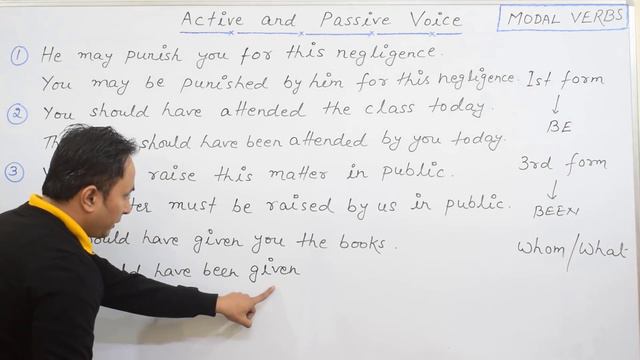 Active and Passive Voice
MODAL VERBS
1 He may punish you for this negligence.
You may be punished by him for this negligence.
2 You should have attended the class today.
should have been attended by you today.
3 raise this matter in public.
must be raised by us in public.
have given you the books.
have been given
1st form
↓
BE
3rd form
↓
BEEN
Whom/What